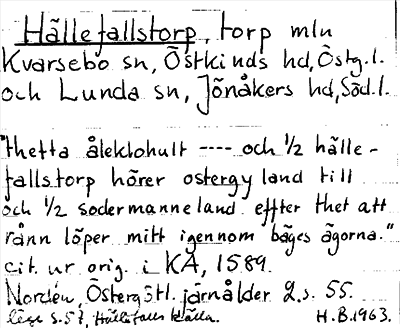 Hällefallstorp, torp mln
Kvarsebo sn, Östkinds hd, Östg.l.
och Lunda sn, Jönåkers hd, Söd.l.
"thetta ålektohult ---- och 1/2 hälle-
fallstorp hörer ostergyland till
och 1/2 sodermanneland effter thet att
rånn löper mitt igennom bäges ägorna."
cit. ur orig. i KA, 1589.
Nordén, Östergötl. järnålder 2, s. 55.
läge s. 57, Hällefalls källa. H.B. 1963.